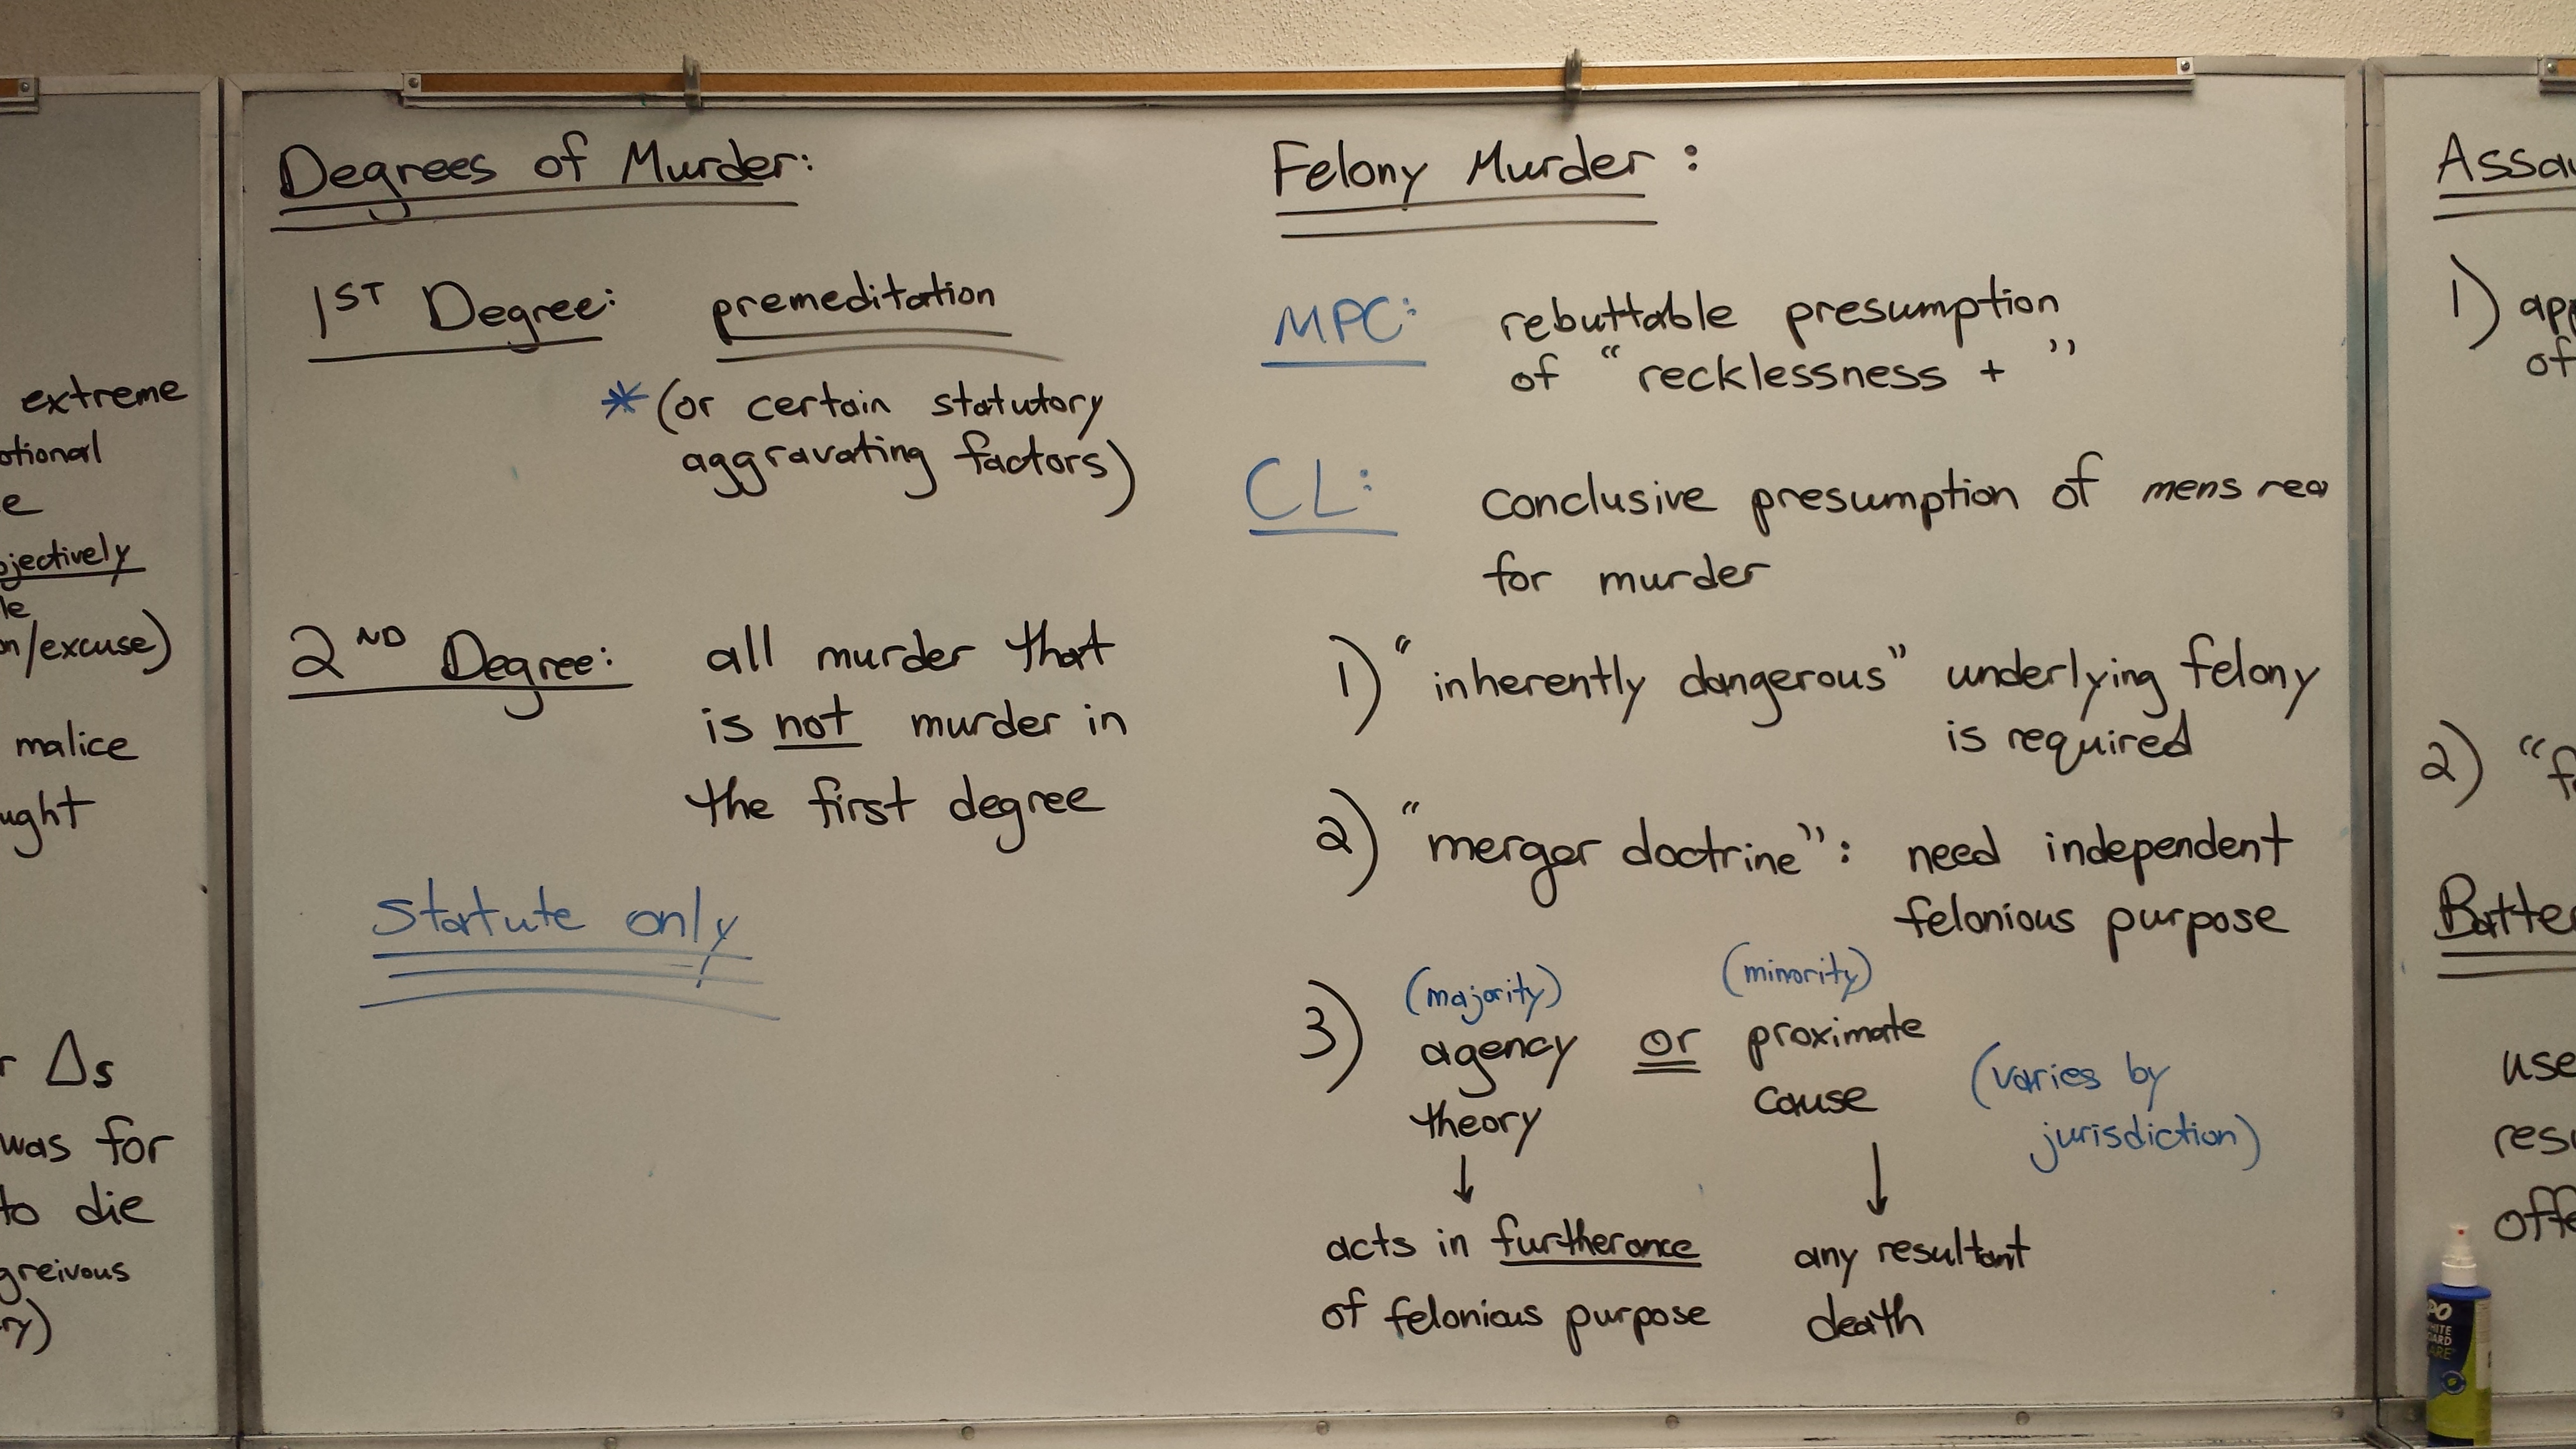 extreme
e
malice
Δs
was for
to die
greivous
Degrees of Murder:
1ST Degree: premeditation
* (or certain statutory
aggravating factors)
2ND Degree: all murder that
is not murder in
the first degree
Statute only
Felony Murder :
MPC: rebuttable presumption
of "recklessness + "
CL: conclusive presumption of mens rea
for murder
1) "inherently dangerous" underlying felony
is required
2) "merger doctrine": need independent
felonious purpose
(majority) (minority)
3) agency or proximate
theory cause (varies by
jurisdiction)
↓ ↓
acts in furtherance any resultant
of felonious purpose death
1)
of
2)
use